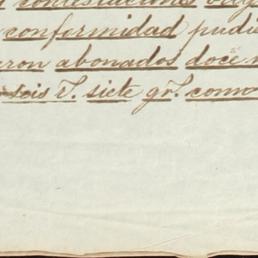 contestaciones
conformidad pudie
ron abonados doce
seis r.s siete gr.s como